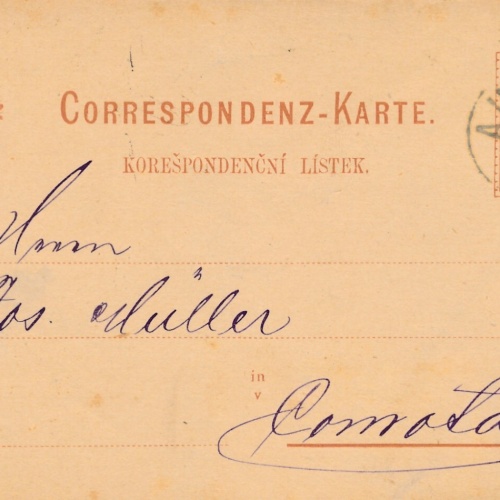 CORRESPONDENZ-KARTE.
KOREŠPONDENČNÍ LÍSTEK.
Herrn
Jos. Müller
in
v
Comota